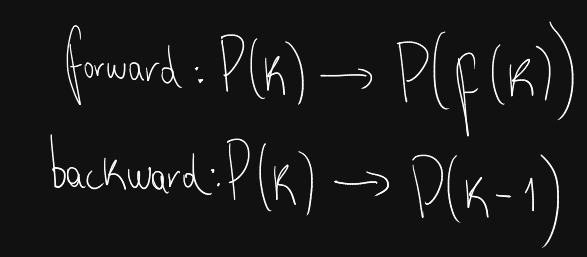 forward: P(k) → P(f(k))
backward: P(k) → P(k-1)